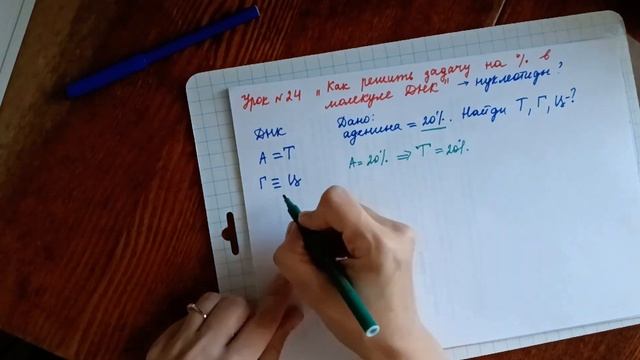 Урок №24 "Как решить задачу на % в
молекуле ДНК" → нуклеотиды?
ДНК
Дано:
аденина = 20%. Найди Т, Г, Ц-?
А = Т
А = 20% ⇒ Т = 20%.
Г ≡ Ц